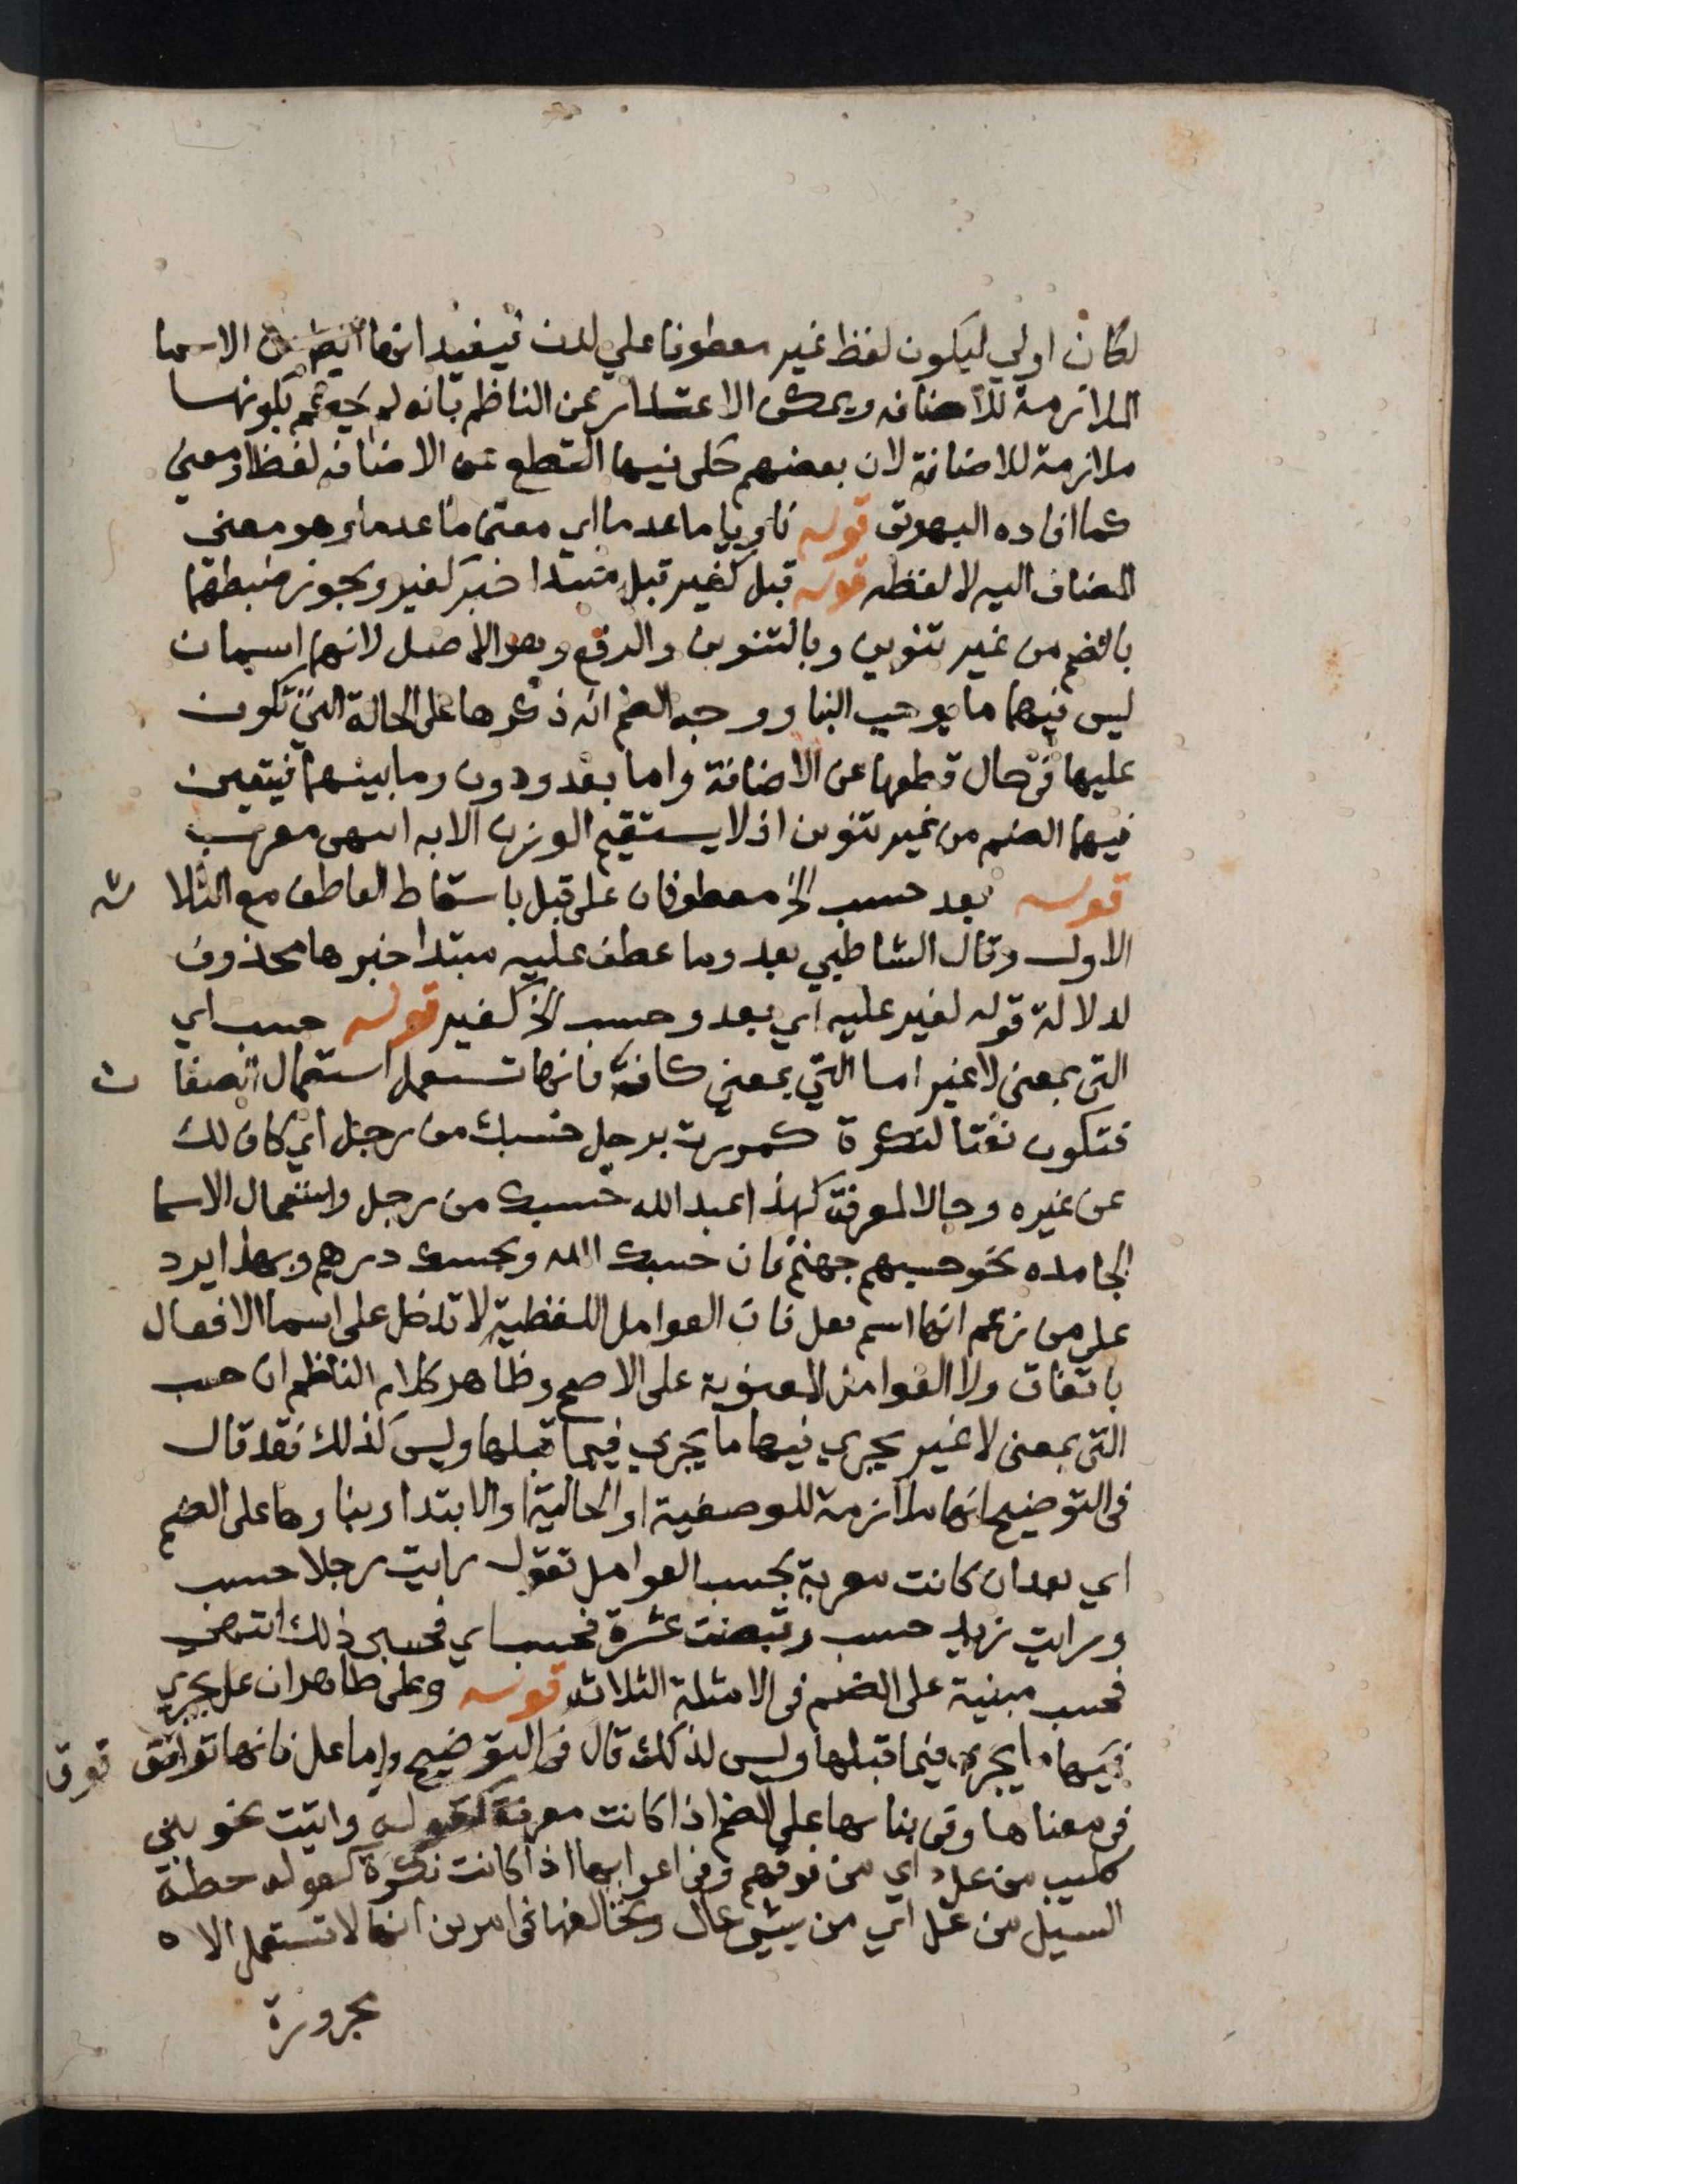 لكان اولي ليكون لفظ غير معطوفا علي لدن فيفيد انها ايضا من الاسما
الملازمة للاضافه ويمكن الاعتذار عن الناظم بانه لم يجزم بكونها
ملازمة للاضافة لان بعضهم حكى فيها القطع عن الاضافه لفظا ومعنى
كما افاده البهوتى قوله ناويا ما عدما اي معنى ما عدما وهو معنى
المضاف اليه لا لفظه قوله قبل كغير قبل مبتدا خبر كغير ويجوز ضبطهما
بالضم من غير تنوين وبالتنوين والرفع وهو الاصل لانهما اسمان
ليس فيهما ما يوجب البنا ووجه الضم انه ذكرها على الحالة التي تكون
عليها في حال قطعها عن الاضافة واما بعد ودون وما بينهما فيتعين
فيها الضم من غير تنوين اذ لا يستقيم الوزن الا به انتهى معرب
قوله بعد حسب الخ معطوفان على قبل باسقاط العاطف مع الثلاثه
الاول وقال الشاطبي بعد وما عطف عليه مبتدا خبرها محذوف
لدلالة قوله لغير عليه اي بعد وحسب الخ كغير قوله حسب اي
التي بمعنى لا غير اما التي بمعني كافة فانها تستعمل استعمال الصفات
فتكون نعتا لنكرة كمررت برجل حسبك من رجل اي كاف لك
عن غيره وحالا لمعرفة كهذا عبد الله حسبك من رجل واستعمال الاسما
الجامده نحو حسبهم جهنم فان حسبك الله وبحسبك درهم وبهذا يرد
على من زعم انها اسم فعل فان العوامل اللفظية لا تدخل على اسما الافعال
باتفاق ولا العوامل المعنوية على الاصح وظاهر كلام الناظم ان حسب
التي بمعنى لا غير يجري فيها ما يجري فيما قبلها وليس كذلك فقد قال
في التوضيح انها ملازمة للوصفية او الحالية او الابتدا وبناوها على الضم
اي بعد ان كانت معربة بحسب العوامل تقول رايت رجلا حسب
ورايت زيد حسب وقبضت عشرة فحسب اي فحسبي ذلك انتهى
فحسب مبنية على الضم في الامثلة الثلاثه قوله وعلى ظاهر ان عل يجري
فيها ما يجري فيما قبلها وليس لذكلك قال في التوضيح واما عل فانها توافق فوق
في معناها وفي بناىها على الضم اذا كانت معرفة كقوله واتيت نحو بني
كليب من عل اي من فوقهم وفي اعرابها اذا كانت نكرة كقوله حطه
السيل من عل اي من شي عال وتخالفها في امرين انها لا تستعمل الا ه
مجرورة